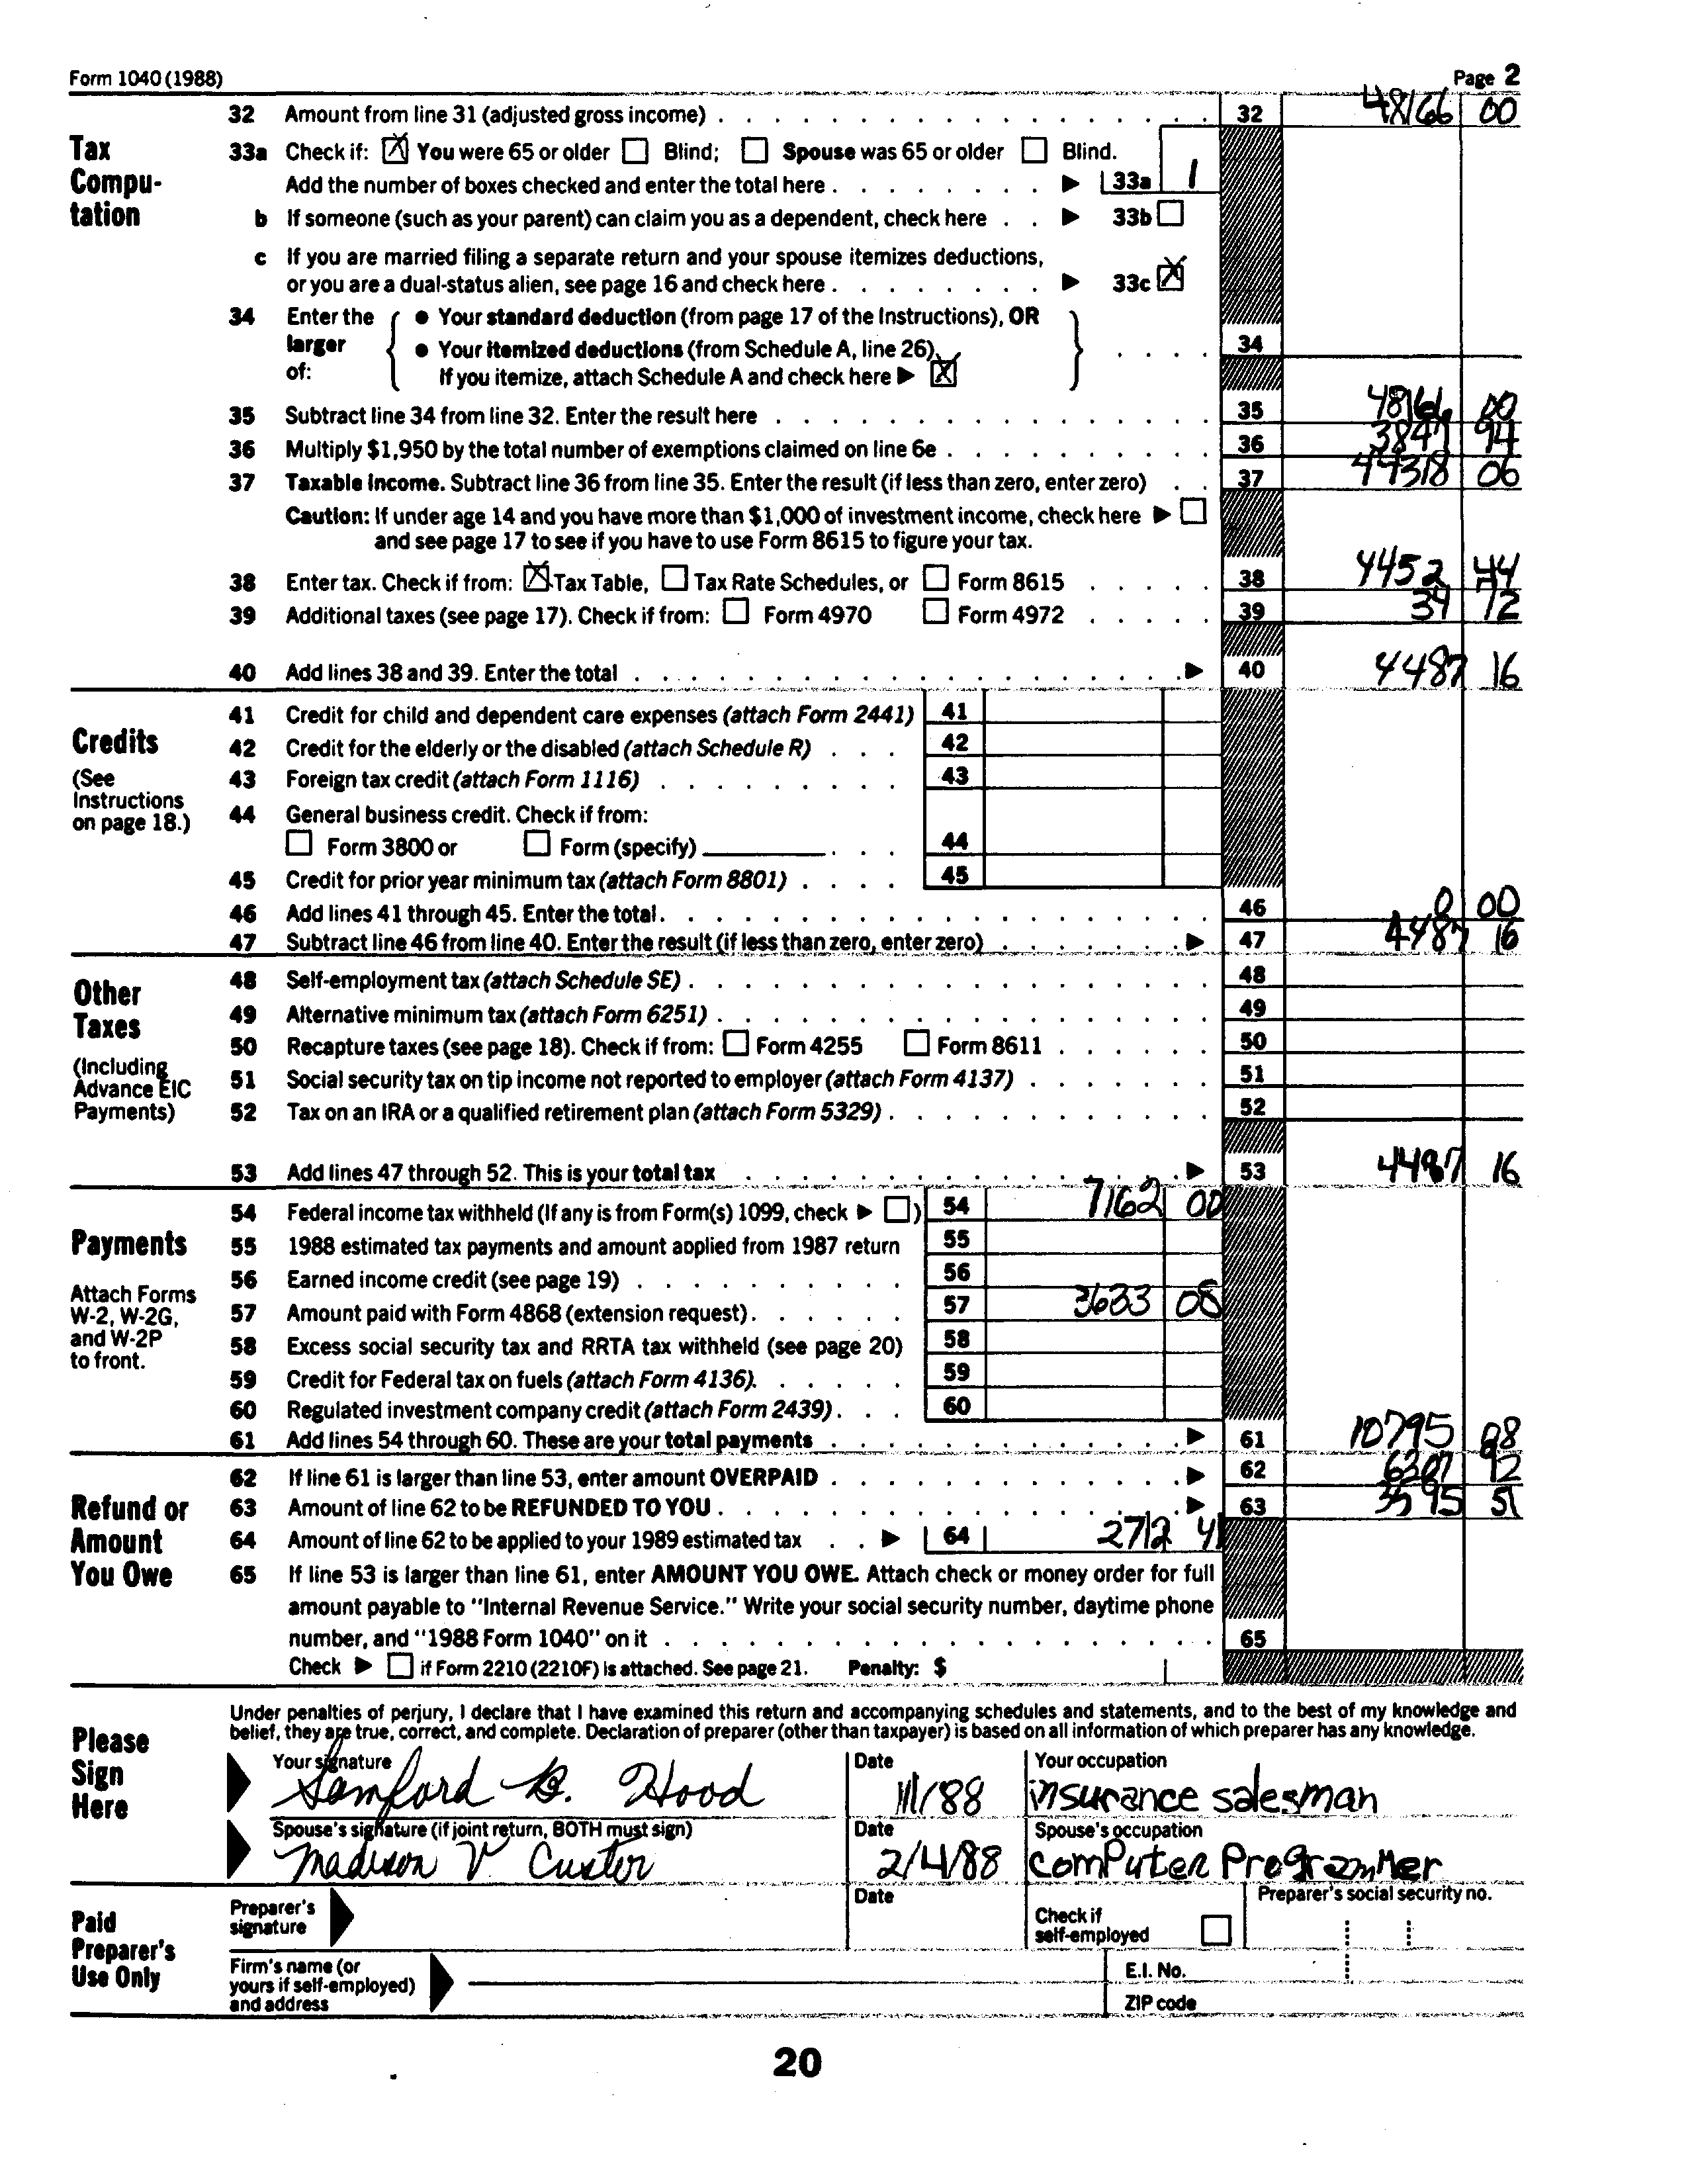 Form 1040 (1988) Page 2
32 Amount from line 31 (adjusted gross income) 32 48166 00
Tax Computation
33a Check if: [X] You were 65 or older [ ] Blind; [ ] Spouse was 65 or older [ ] Blind.
Add the number of boxes checked and enter the total here ▶ 33a 1
b If someone (such as your parent) can claim you as a dependent, check here ▶ 33b [ ]
c If you are married filing a separate return and your spouse itemizes deductions,
or you are a dual-status alien, see page 16 and check here ▶ 33c [X]
34 Enter the larger of: { • Your standard deduction (from page 17 of the Instructions), OR
• Your itemized deductions (from Schedule A, line 26). 34
If you itemize, attach Schedule A and check here ▶ [X] }
35 Subtract line 34 from line 32. Enter the result here 35 48166 00
36 Multiply $1,950 by the total number of exemptions claimed on line 6e 36 3847 94
37 Taxable income. Subtract line 36 from line 35. Enter the result (if less than zero, enter zero) 37 44318 06
Caution: If under age 14 and you have more than $1,000 of investment income, check here ▶ [ ]
and see page 17 to see if you have to use Form 8615 to figure your tax.
38 Enter tax. Check if from: [X] Tax Table, [ ] Tax Rate Schedules, or [ ] Form 8615 38 4452 44
39 Additional taxes (see page 17). Check if from: [ ] Form 4970 [ ] Form 4972 39 34 72
40 Add lines 38 and 39. Enter the total ▶ 40 4487 16
Credits
(See Instructions on page 18.)
41 Credit for child and dependent care expenses (attach Form 2441) 41
42 Credit for the elderly or the disabled (attach Schedule R) 42
43 Foreign tax credit (attach Form 1116) 43
44 General business credit. Check if from:
[ ] Form 3800 or [ ] Form (specify) 44
45 Credit for prior year minimum tax (attach Form 8801) 45
46 Add lines 41 through 45. Enter the total. 46 0 00
47 Subtract line 46 from line 40. Enter the result (if less than zero, enter zero) ▶ 47 4487 16
Other Taxes
(Including Advance EIC Payments)
48 Self-employment tax (attach Schedule SE) 48
49 Alternative minimum tax (attach Form 6251) 49
50 Recapture taxes (see page 18). Check if from: [ ] Form 4255 [ ] Form 8611 50
51 Social security tax on tip income not reported to employer (attach Form 4137) 51
52 Tax on an IRA or a qualified retirement plan (attach Form 5329) 52
53 Add lines 47 through 52. This is your total tax ▶ 53 4487 16
Payments
Attach Forms W-2, W-2G, and W-2P to front.
54 Federal income tax withheld (If any is from Form(s) 1099, check ▶ [ ]) 54 7162 00
55 1988 estimated tax payments and amount applied from 1987 return 55
56 Earned income credit (see page 19) 56
57 Amount paid with Form 4868 (extension request) 57 3633 08
58 Excess social security tax and RRTA tax withheld (see page 20) 58
59 Credit for Federal tax on fuels (attach Form 4136). 59
60 Regulated investment company credit (attach Form 2439) 60
61 Add lines 54 through 60. These are your total payments ▶ 61 10795 08
Refund or Amount You Owe
62 If line 61 is larger than line 53, enter amount OVERPAID ▶ 62 6307 92
63 Amount of line 62 to be REFUNDED TO YOU ▶ 63 3595 51
64 Amount of line 62 to be applied to your 1989 estimated tax ▶ 64 2712 41
65 If line 53 is larger than line 61, enter AMOUNT YOU OWE. Attach check or money order for full
amount payable to "Internal Revenue Service." Write your social security number, daytime phone
number, and "1988 Form 1040" on it 65
Check ▶ [ ] if Form 2210 (2210F) is attached. See page 21. Penalty: $
Please Sign Here
Under penalties of perjury, I declare that I have examined this return and accompanying schedules and statements, and to the best of my knowledge and
belief, they are true, correct, and complete. Declaration of preparer (other than taxpayer) is based on all information of which preparer has any knowledge.
Your signature Samford B. Hood Date 1/1/88 Your occupation insurance salesman
Spouse's signature (if joint return, BOTH must sign) Madison V. Custer Date 2/4/88 Spouse's occupation computer Programmer
Paid Preparer's Use Only
Preparer's signature Date Check if self-employed [ ] Preparer's social security no.
Firm's name (or yours if self-employed) and address E.I. No.
ZIP code
20